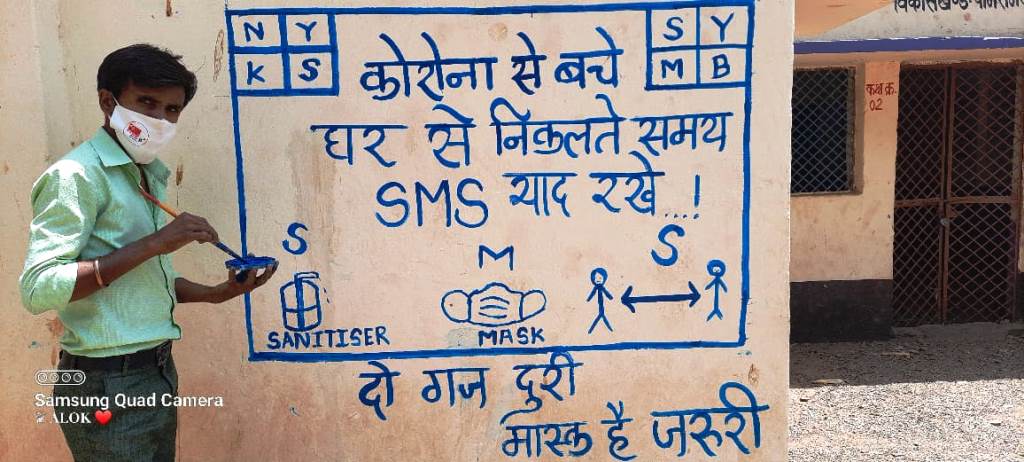 N Y
K S
S Y
M B
कोरोना से बचे
घर से निकलते समय
SMS याद रखे...!
S
M
S
SANITISER
MASK
दो गज दुरी
मास्क है जरुरी
कक्ष क्र.
02
Samsung Quad Camera
ALOK